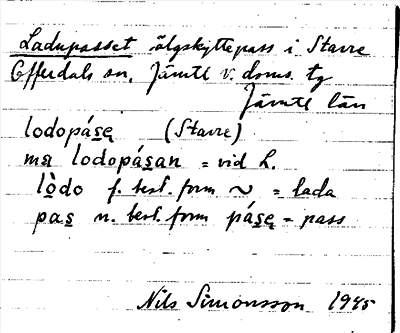 Ladupasset älgskyttepass i Stavre
Offerdals sn. Jämtl v. doms. tg
Jämtl län
lodopás̲ę (Stavre)
ma lodopás̲an = vid L.
lò̲do f. best. form ~ = lada
pas̲ n. best. form pás̲ę = pass
Nils Simonsson 1945